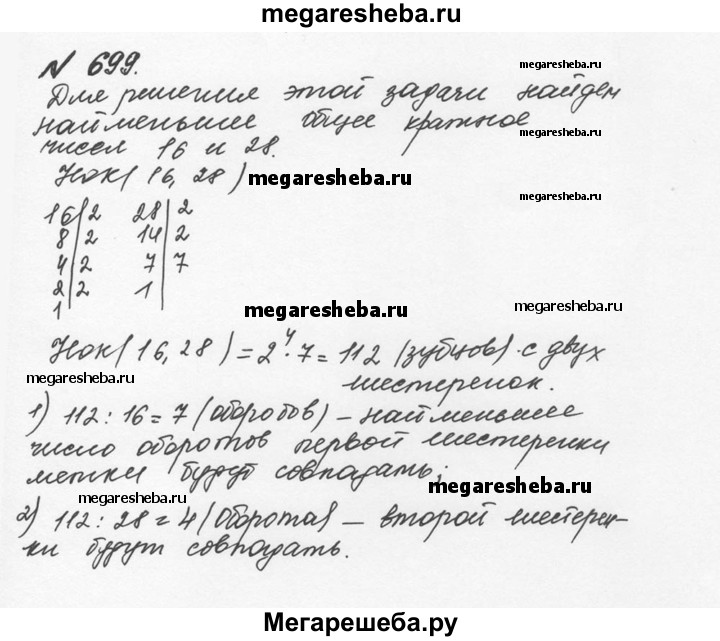 megaresheba.ru
N 699.
megaresheba.ru
Для решения этой задачи найдем
наименьшее общее кратное
megaresheba.ru
чисел 16 и 28.
НОК(16, 28)
megaresheba.ru
megaresheba.ru
16|2 28|2
8|2 14|2
4|2 7|7
2|2 1
1
megaresheba.ru
megaresheba.ru
НОК(16, 28) = 2⁴·7 = 112 (зубцов) с двух
шестеренок.
megaresheba.ru
1) 112 : 16 = 7 (оборотов) – наименьшее
число оборотов первой шестеренки
метки будут совпадать;
megaresheba.ru
megaresheba.ru
2) 112 : 28 = 4 (оборота) – второй шестерен-
ки будут совпадать.
Мегарешеба.ру